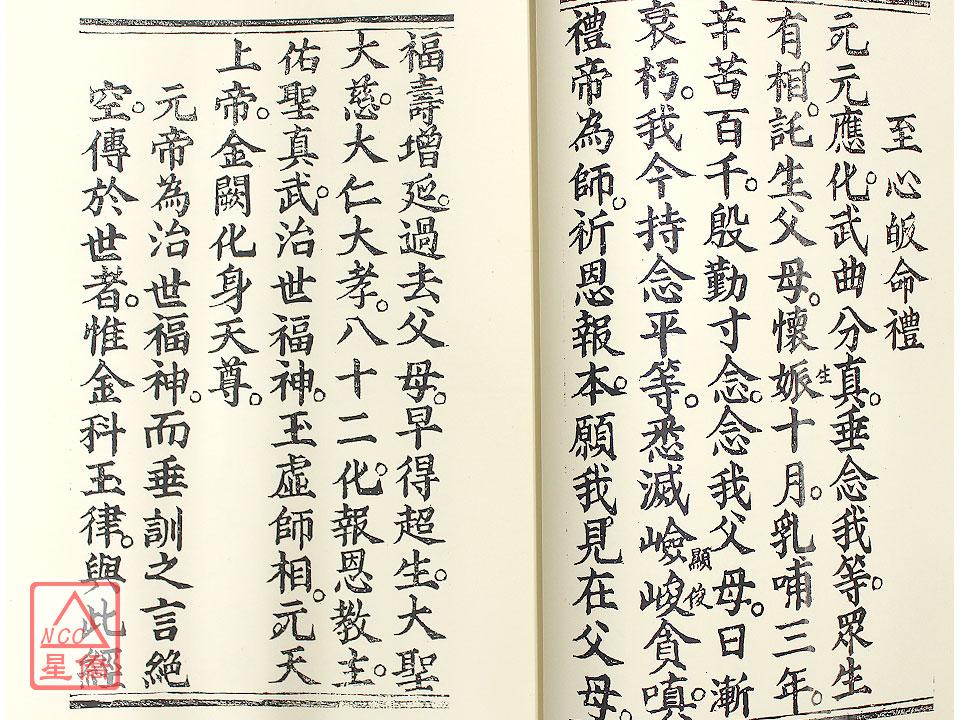 至心皈命禮
元元應化。武曲分真。垂念我等。眾生
有相。託生父母。懷娠十月。乳哺三年。
生
辛苦百千。殷勤寸念。念我父母。日漸
衰朽。我今持念平等。悉滅嶮峻貪嗔。
顯 俊
禮帝為師。祈恩報本。願我見在父母。
福壽增延。過去父母。早得超生。大聖
大慈。大仁大孝。八十二化。報恩教主。
佑聖真武。治世福神。玉虛師相。元天
上帝。金闕化身天尊。
元帝為治世福神。而垂訓之言絕
空。傳於世者。惟金科玉律。與此經
NCC
星僑